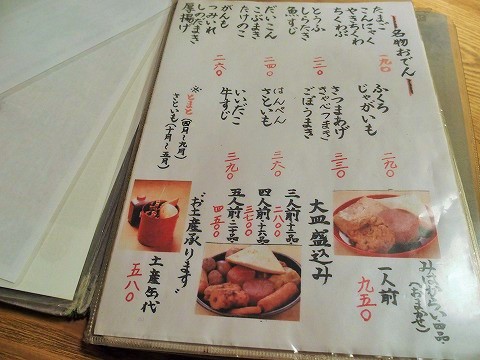 名物おでん
たまご
こんにゃく
やきちくわ
ちくわぶ
一九〇
とうふ
しらたき
魚すじ
二三〇
だいこん
こぶまき
たけのこ
二四〇
がんも
つみいれ
しのだまき
厚揚げ
二六〇
ふくろ
じゃがいも
二九〇
さつまあげ
きゃべつまき
ごぼうまき
三三〇
はんぺん
さといも
三六〇
いいだこ
牛すじ
三九〇
※
とまと(四月〜九月)
さといも(十月〜五月)
一人前
九五〇
大皿盛込み
三人前十二品
二八〇〇
四人前十六品
三七〇〇
五人前二十品
四五〇〇
"お土産承ります"
土産缶代
五八〇